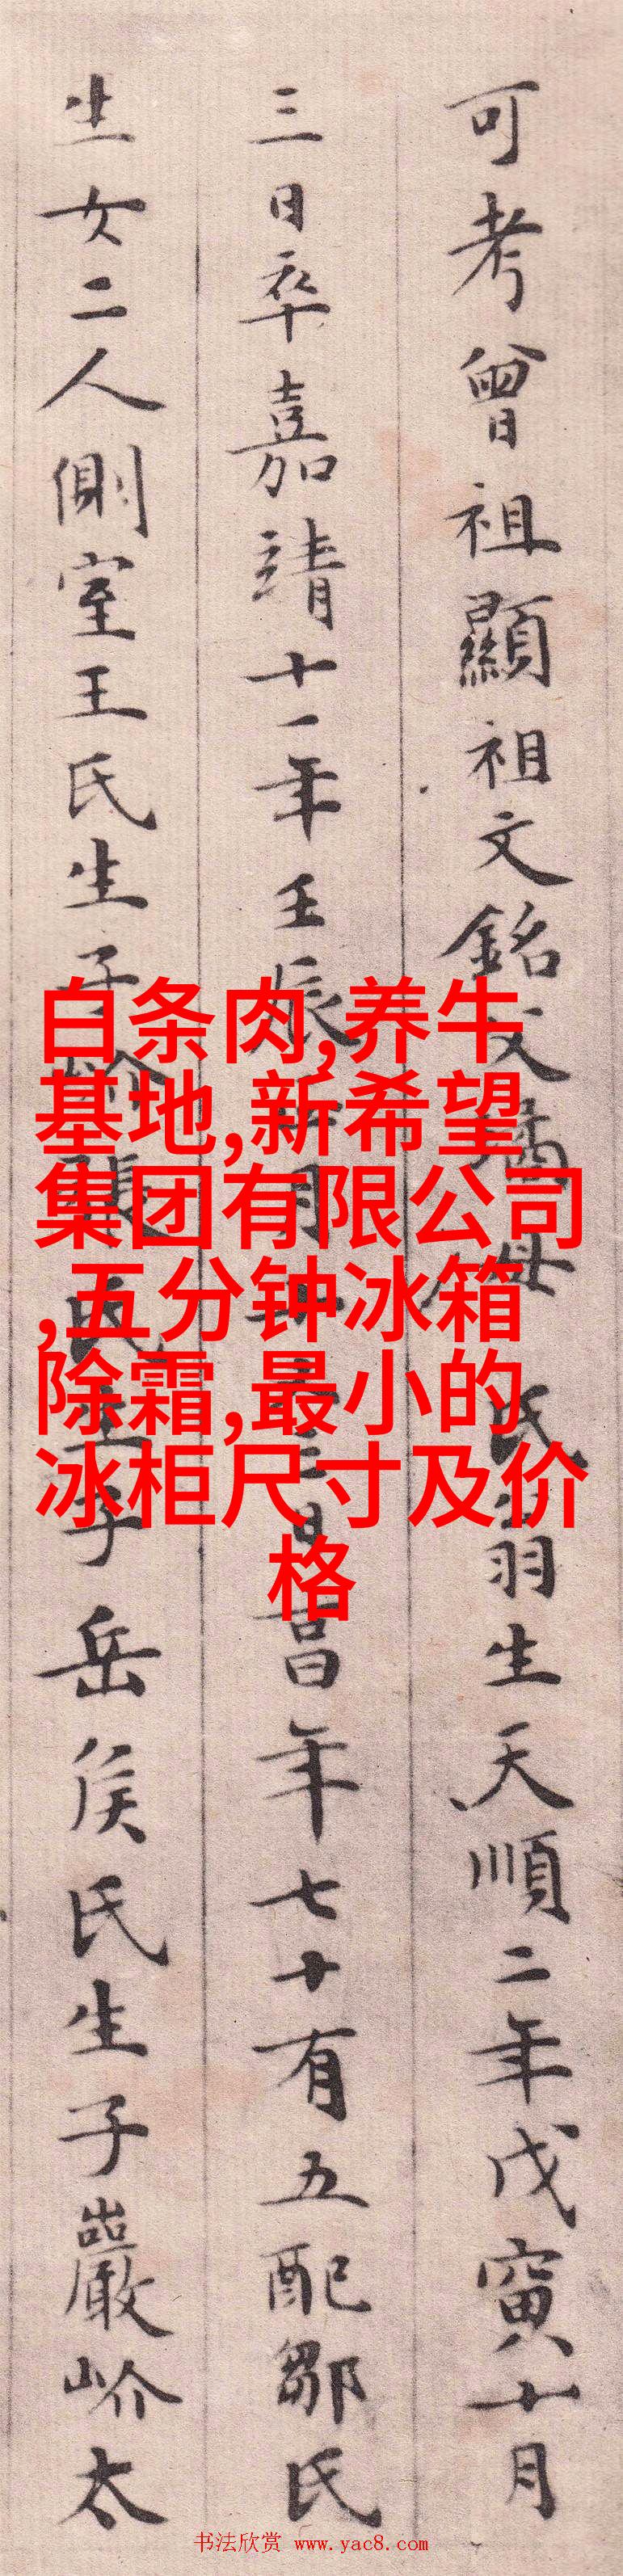 可考曾祖顯祖文銘父璚母 氏翁生天順二年戊寅十月
三日卒嘉靖十一年壬辰 月 三日享年七十有五配鄒氏
生女二人側室王氏生子岎張氏生子岳侯氏生子巖岕太
白条肉,养牛
基地,新希望
集团有限公司
,五分钟冰箱
除霜,最小的
冰柜尺寸及价
格
书法欣赏 www.yac8.com